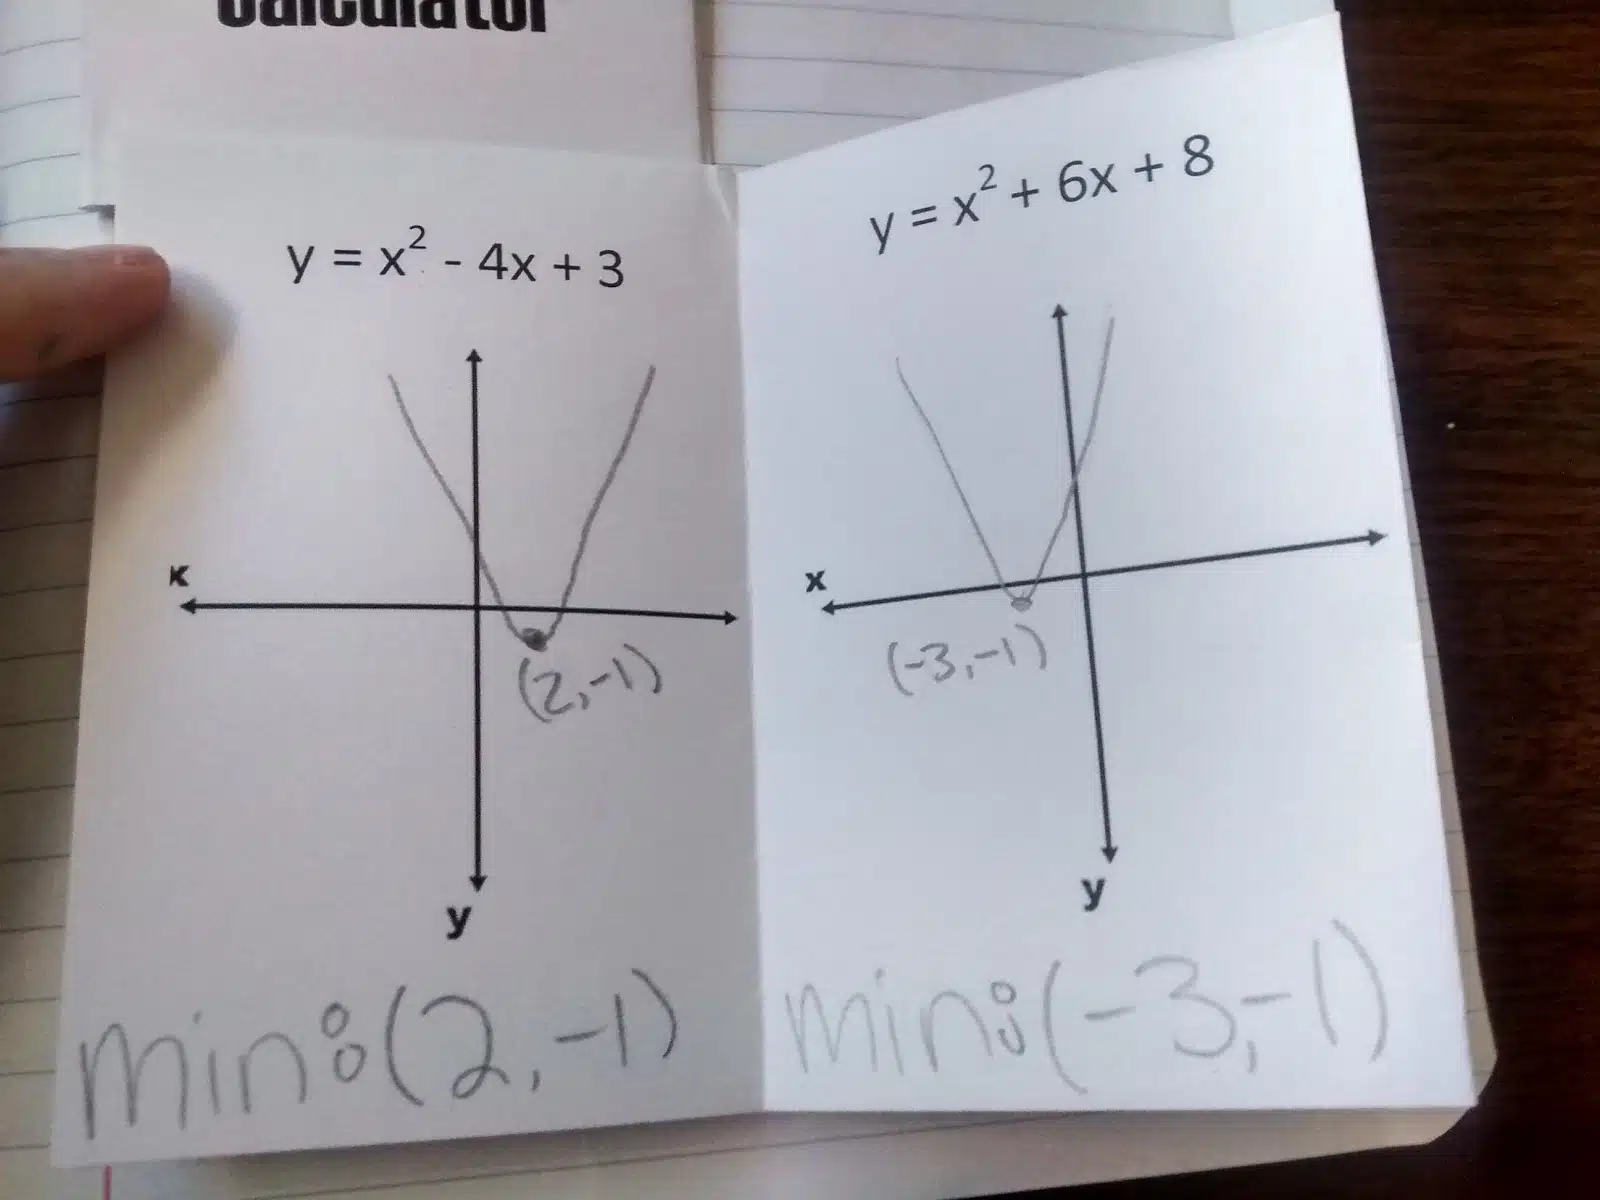 Calculator
y = x² - 4x + 3
x
(2,-1)
y
min:(2,-1)
y = x² + 6x + 8
x
(-3,-1)
y
min:(-3,-1)